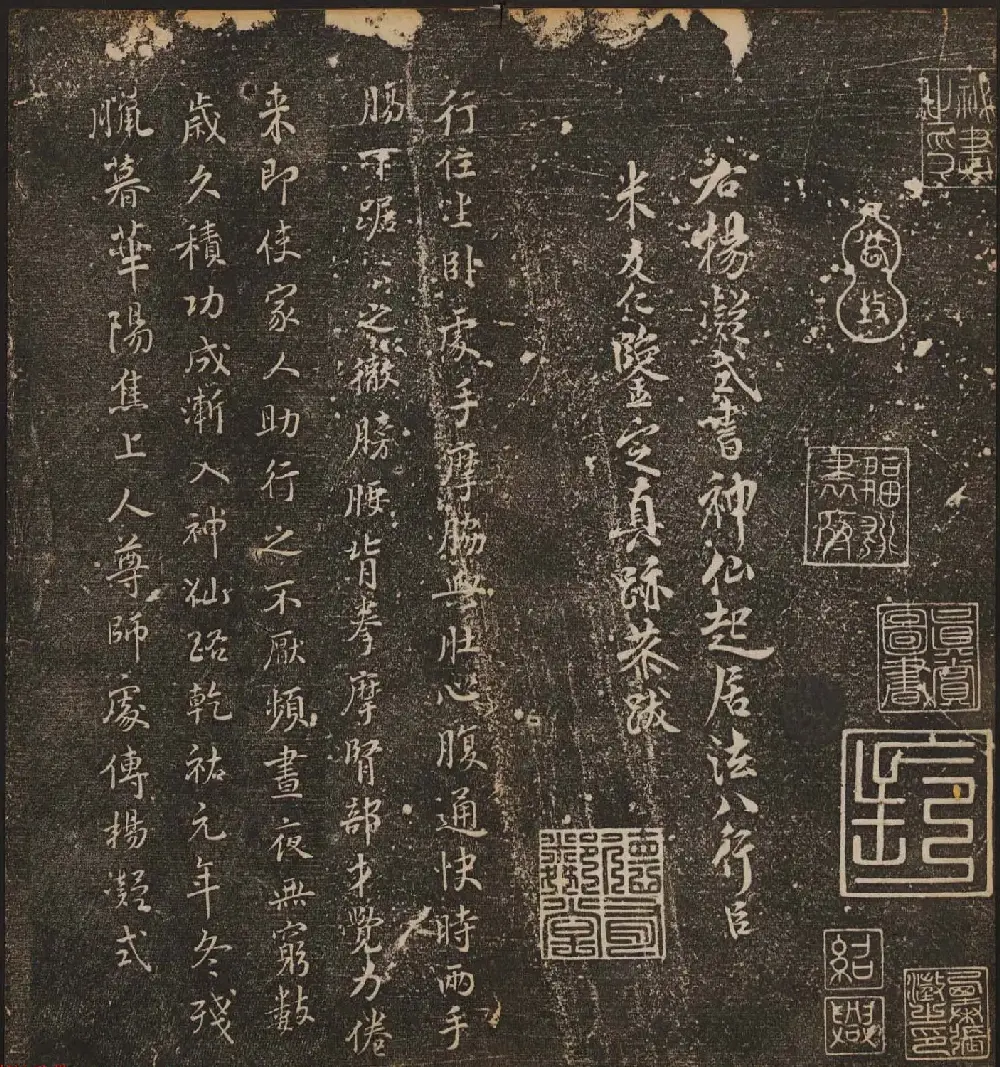 紹興
右楊凝式書神仙起居法八行臣
米友仁鑒定真跡恭跋
行住坐卧處手摩脇與肚心腹通快時兩手
腸下踞〻之徹膀腰背拳摩腎部才覺力倦
来即使家人助行之不厭頻晝夜無窮數
歲久積功成漸入神仙路乾祐元年冬殘
臘暮華陽焦上人尊師處傳楊凝式